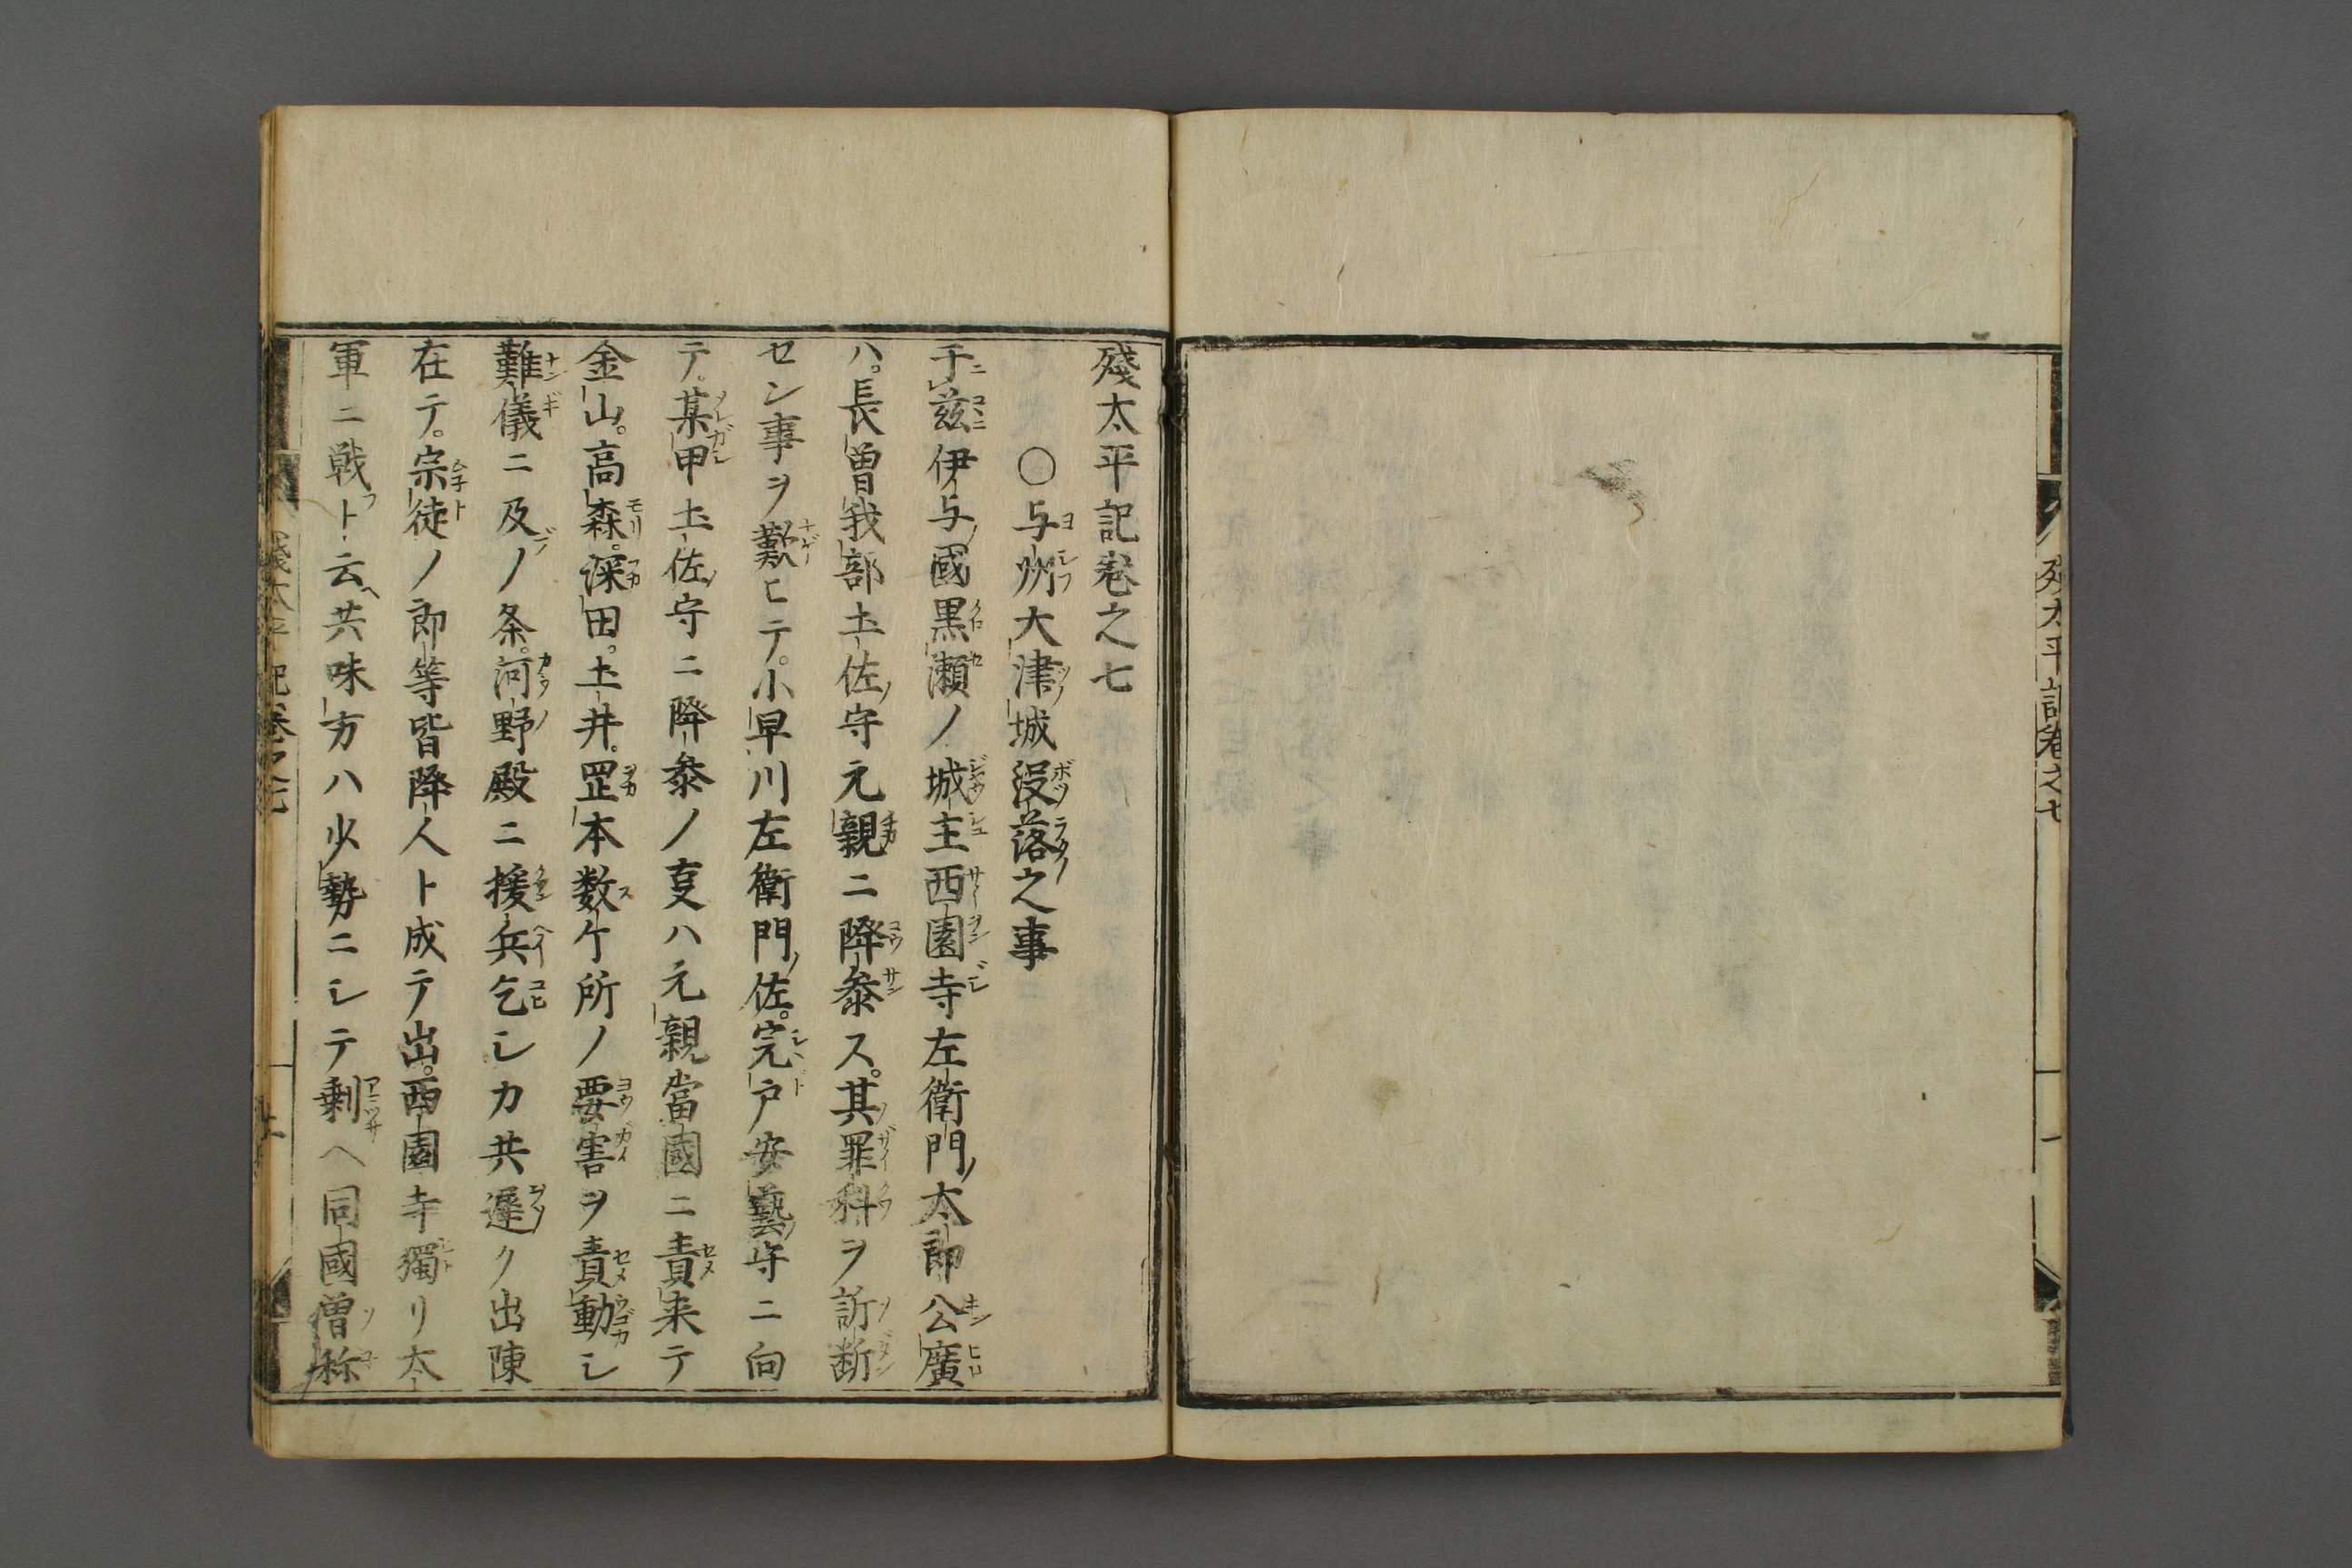 残太平記巻之七
一
殘太平記巻之七
○与州大津城没落之事
于茲伊与國黒瀬ノ城主西園寺左衛門太郎公廣
ハ。長曽我部土佐守元親ニ降参ス。其罪科ヲ訴断
セン事ヲ歎ヒテ。小早川左衛門佐。宍戸安藝守ニ向
テ。某甲土佐守ニ降参ノ叓ハ元親當國ニ責来テ
金山。高森。深田。土井。罡本数ケ所ノ要害ヲ責動シ
難儀ニ及ノ条。河野殿ニ援兵乞シカ共遅ク出陳
在テ。宗徒ノ郎等皆降人ト成テ出。西園寺獨リ太
軍ニ戦ト云共味方ハ少勢ニシテ剰ヘ同國曽祢
残太平記巻之七